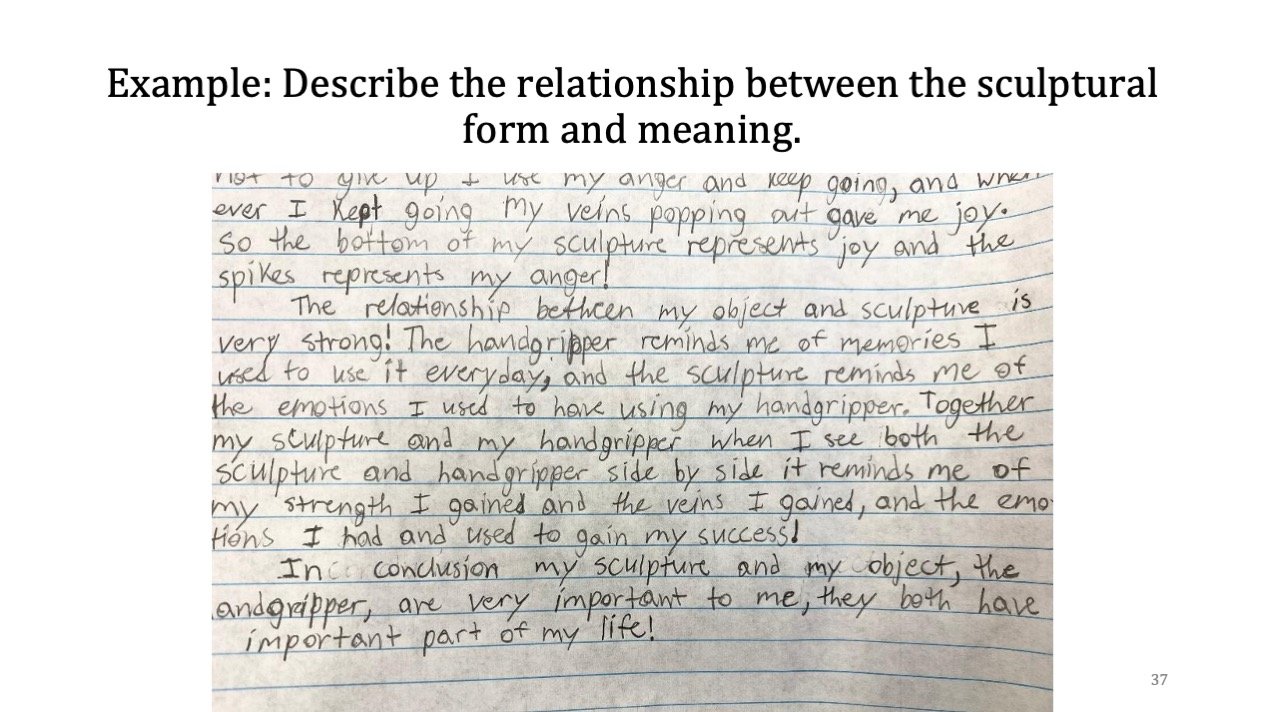 Example: Describe the relationship between the sculptural
form and meaning.
not to give up I use my anger and keep going, and when
ever I kept going my veins popping out gave me joy.
So the bottom of my sculpture represents joy and the
spikes represents my anger!
The relationship bethcen my object and sculpture is
very strong! The handgripper reminds me of memories I
used to use it everyday, and the sculpture reminds me of
the emotions I used to have using my handgripper. Together
my sculpture and my handgripper when I see both the
sculpture and handgripper side by side it reminds me of
my strength I gained and the veins I gained, and the emo
tions I had and used to gain my success!
In conclusion my sculpture and my object, the
andgripper, are very important to me, they both have
important part of my life!
37